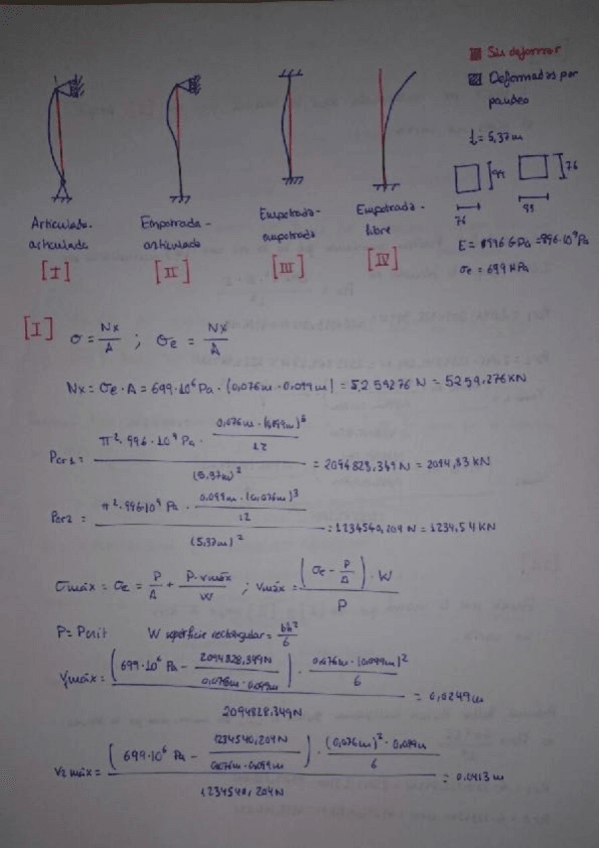 Sin deformar
Deformadas por
pandeo
L = 5,37m
76
99
76
E = 996 GPa = 996·10⁹Pa
σe = 699 MPa
Articulada-
articulada
[I]
Empotrada-
articulada
[II]
Empotrada-
empotrada
[III]
Empotrada-
libre
[IV]
[I] σ = Nx/A ; σe = Nx/A
Nx = σe · A = 699·10⁶ Pa · (0,076m · 0,099m) = 5259276 N = 5259,276KN
Pcr1 = (π² · 996·10⁹ Pa · (0,076m · (0,099m)³)/12) / (5,37m)² = 2094828,349N = 2094,83 KN
Pcr2 = (π² · 996·10⁹ Pa · (0,099m · (0,076m)³)/12) / (5,37m)² = 1234540,204 N = 1234,54 KN
σmáx = σe = P/A + P·vmáx/W ; vmáx = ((σe - P/A) · W) / P
P = Pcrit W superficie rectangular = bh²/6
V1máx = ((699·10⁶ Pa - 2094828,349N/(0,076m · 0,099m)) · (0,076m · (0,099m)²)/6) / 2094828,349N = 0,0249m
V2máx = ((699·10⁶ Pa - 1234540,204N/(0,076m · 0,099m)) · ((0,076m)² · 0,099m)/6) / 1234540,204N = 0,0413 m